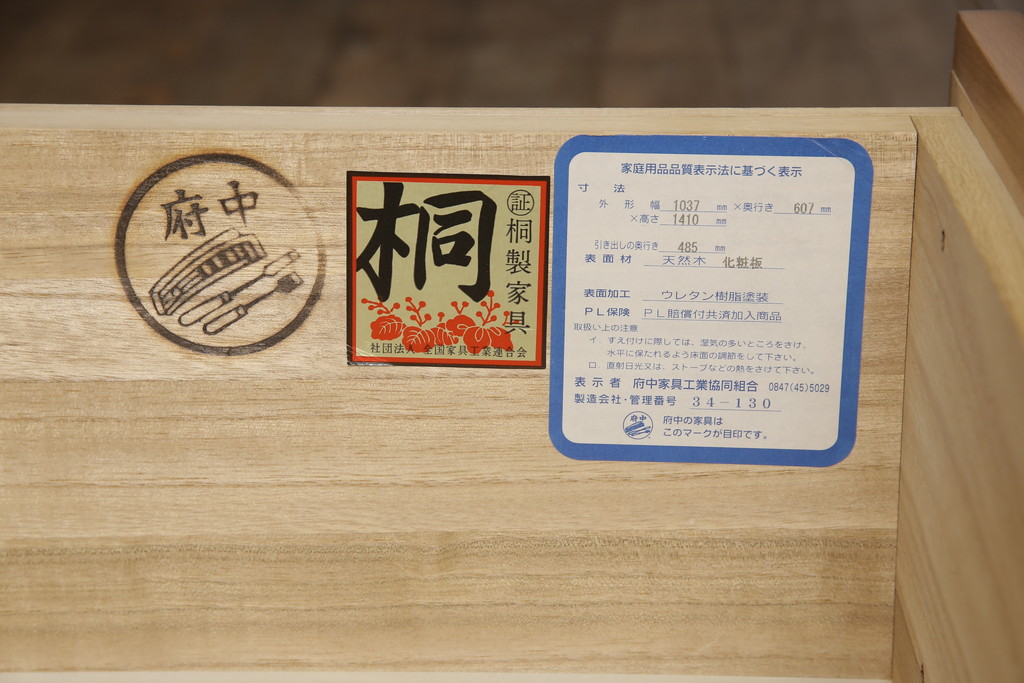 府中
桐
証
桐製家具
社団法人 全国家具工業連合会
家庭用品品質表示法に基づく表示
寸 法
外 形 幅 1037 mm ×奥行き 607 mm
×高さ 1410 mm
引き出しの奥行き 485 mm
表面材 天然木 化粧板
表面加工 ウレタン樹脂塗装
PL保険 PL賠償付共済加入商品
取扱い上の注意
イ. すえ付けに際しては、湿気の多いところをさけ、
水平に保たれるよう床面の調節をして下さい。
ロ. 直射日光又は、ストーブなどの熱をさけて下さい。
表示者 府中家具工業協同組合 0847(45)5029
製造会社・管理番号 34-130
府中
府中の家具は
このマークが目印です。